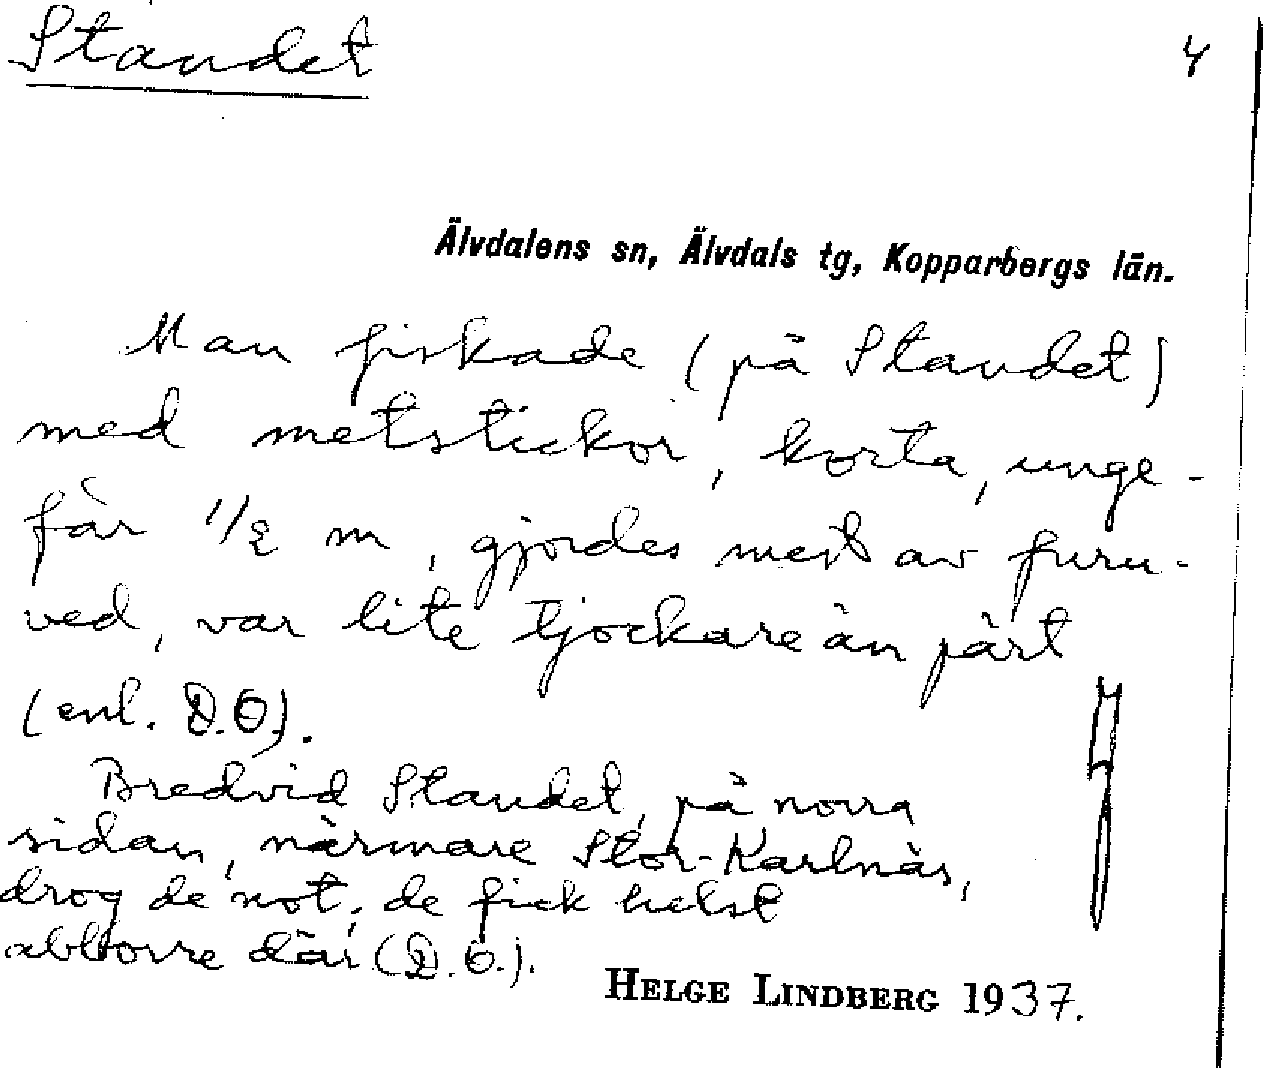 Standet
4
Älvdalens sn, Älvdals tg, Kopparbergs län.
Man fiskade (på Standet)
med metstickor, korta, unge-
fär 1/2 m, gjordes mest av furu-
ved, var lite tjockare än pärt
(enl. D.Ö).
Bredvid Standet, på norra
sidan, närmare Stor-Karlnäs,
drog de not; de fick helst
abborre där (D.Ö.).
HELGE LINDBERG 1937.